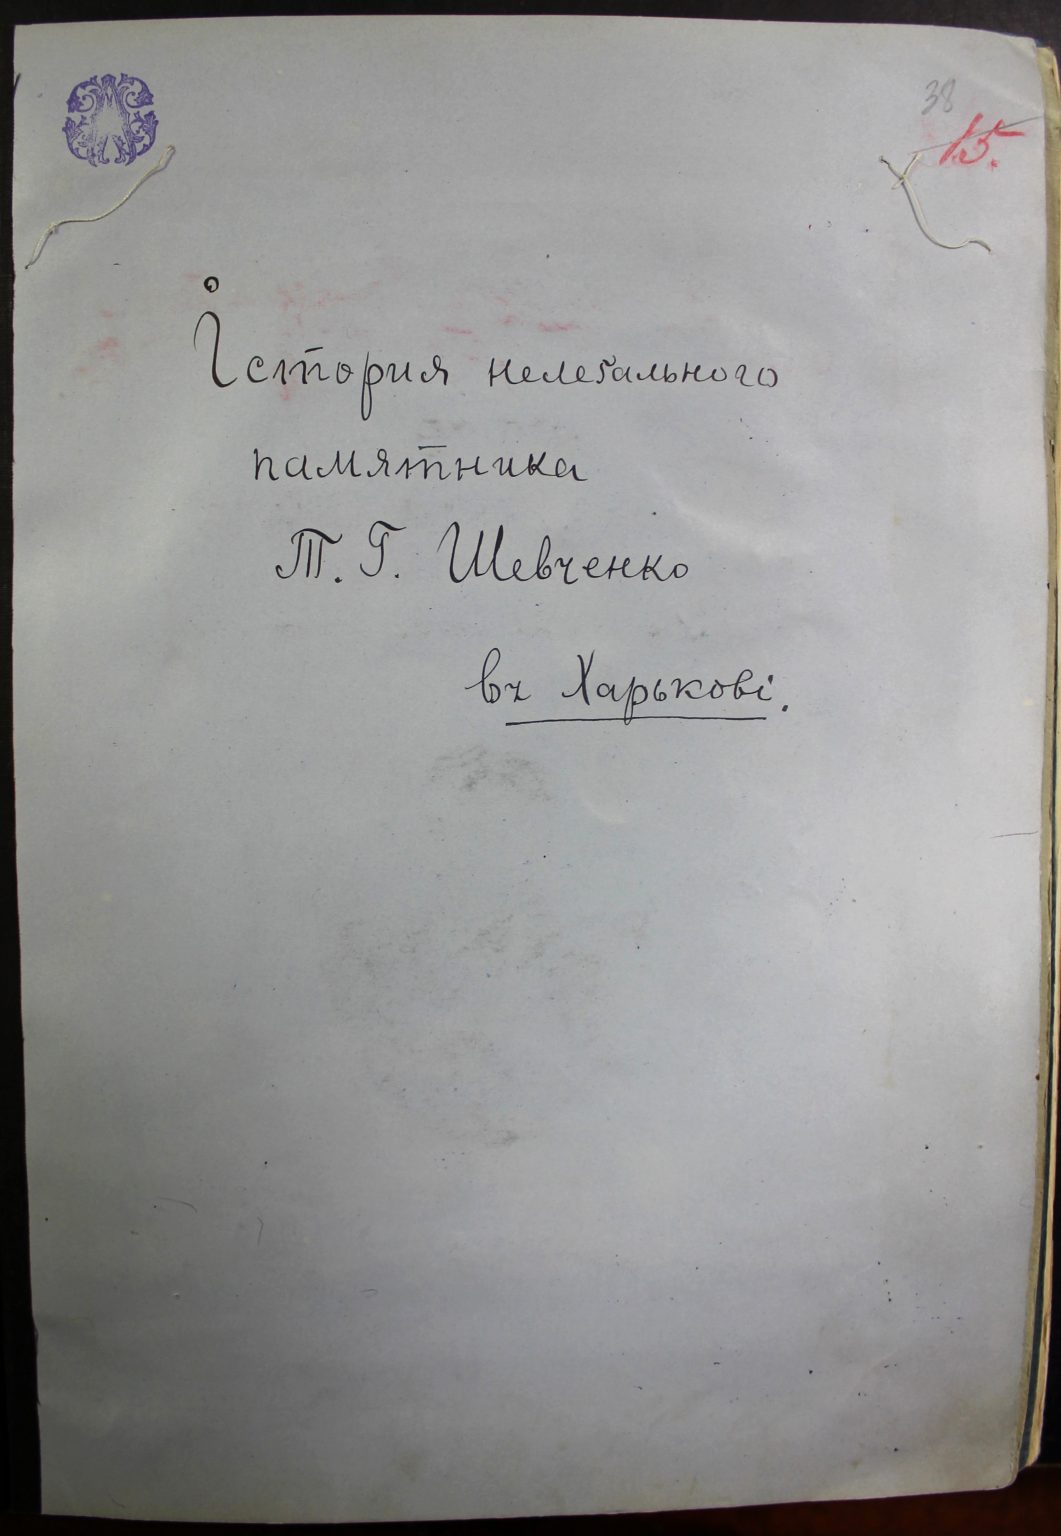 38
15.
Істория нелегального
памятника
Т. Г. Шевченко
въ Харькові.